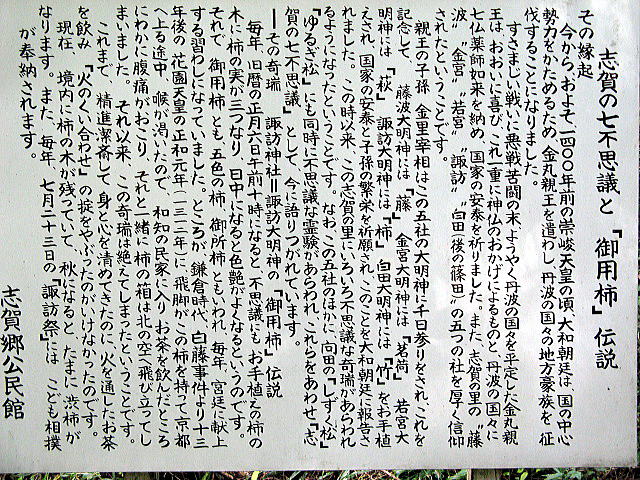 志賀の七不思議と「御用柿」伝説
その縁起
今から、およそ一四〇〇年前の崇峻天皇の頃、大和朝廷は、国の中心
勢力をかためるため、金丸親王を遣わし、丹波の国々の地方豪族を征
伐することになりました。
すさまじい戦いに悪戦苦闘の末、ようやく丹波の国々を平定した金丸親
王は、おおいに喜び、これ一重に神仏のおかげによるものと、丹波の国々に
七仏薬師如来を納め、国家の安泰を祈りました。また、志賀の里の〝藤
波〟〝金宮〟〝若宮〟〝諏訪〟〝白田〟後の篠田〟の五つの社を厚く信仰
されたということです。
親王の子孫、金里宰相はこの五社の大明神に千日参りをされ、これを
記念して、藤波大明神には「藤」金宮大明神には「茗荷」若宮大
明神には「萩」諏訪大明神には「柿」白田大明神には「竹」をお手植
えされ、国家の安泰と子孫の繁栄を祈願され、このことを大和朝廷に報告さ
れました。この時以来、この志賀の里にいろいろ不思議な奇瑞があらわれ
るようになったということです。なお、この五社のほかに、向田の「しずく松」
「ゆるぎ松」にも同時に不思議な霊験があらわれ、これらをあわせ「志
賀の七不思議」として、今に語りつがれています。
―その奇瑞 諏訪神社=諏訪大明神の「御用柿」伝説
毎年、旧暦の正月六日午前十時になると、不思議にもお手植えの柿の
木に柿の実が三つなり、日中になると色艶がよくなるというのです。
それで、御用柿とも五色の柿、御所柿ともいわれ、毎年、宮廷に献上
する習わしになっていました。ところが、鎌倉時代、白藤事件より十三
年後の花園天皇の正和元年(一三一二年)に、飛脚がこの柿を持って京都
へ上る途中、喉が渇いたので、和知の民家に入り、お茶を飲んだところ
にわかに腹痛がおこり、それと一緒に柿の箱は北の空へ飛び立ってし
まいました。それ以来、この奇瑞は絶えてしまったということです。
これまで、精進潔斎して身と心を清めてきたのに、火を通したお茶
を飲み、「火のくい合わせ」の掟をやぶったのがいけなかったのです。
現在、境内に柿の木が残っていて、秋になると、たまに渋柿が
なります。また、毎年、七月二十三日の「諏訪祭」には、こども相撲
が奉納されます。
志賀郷公民館